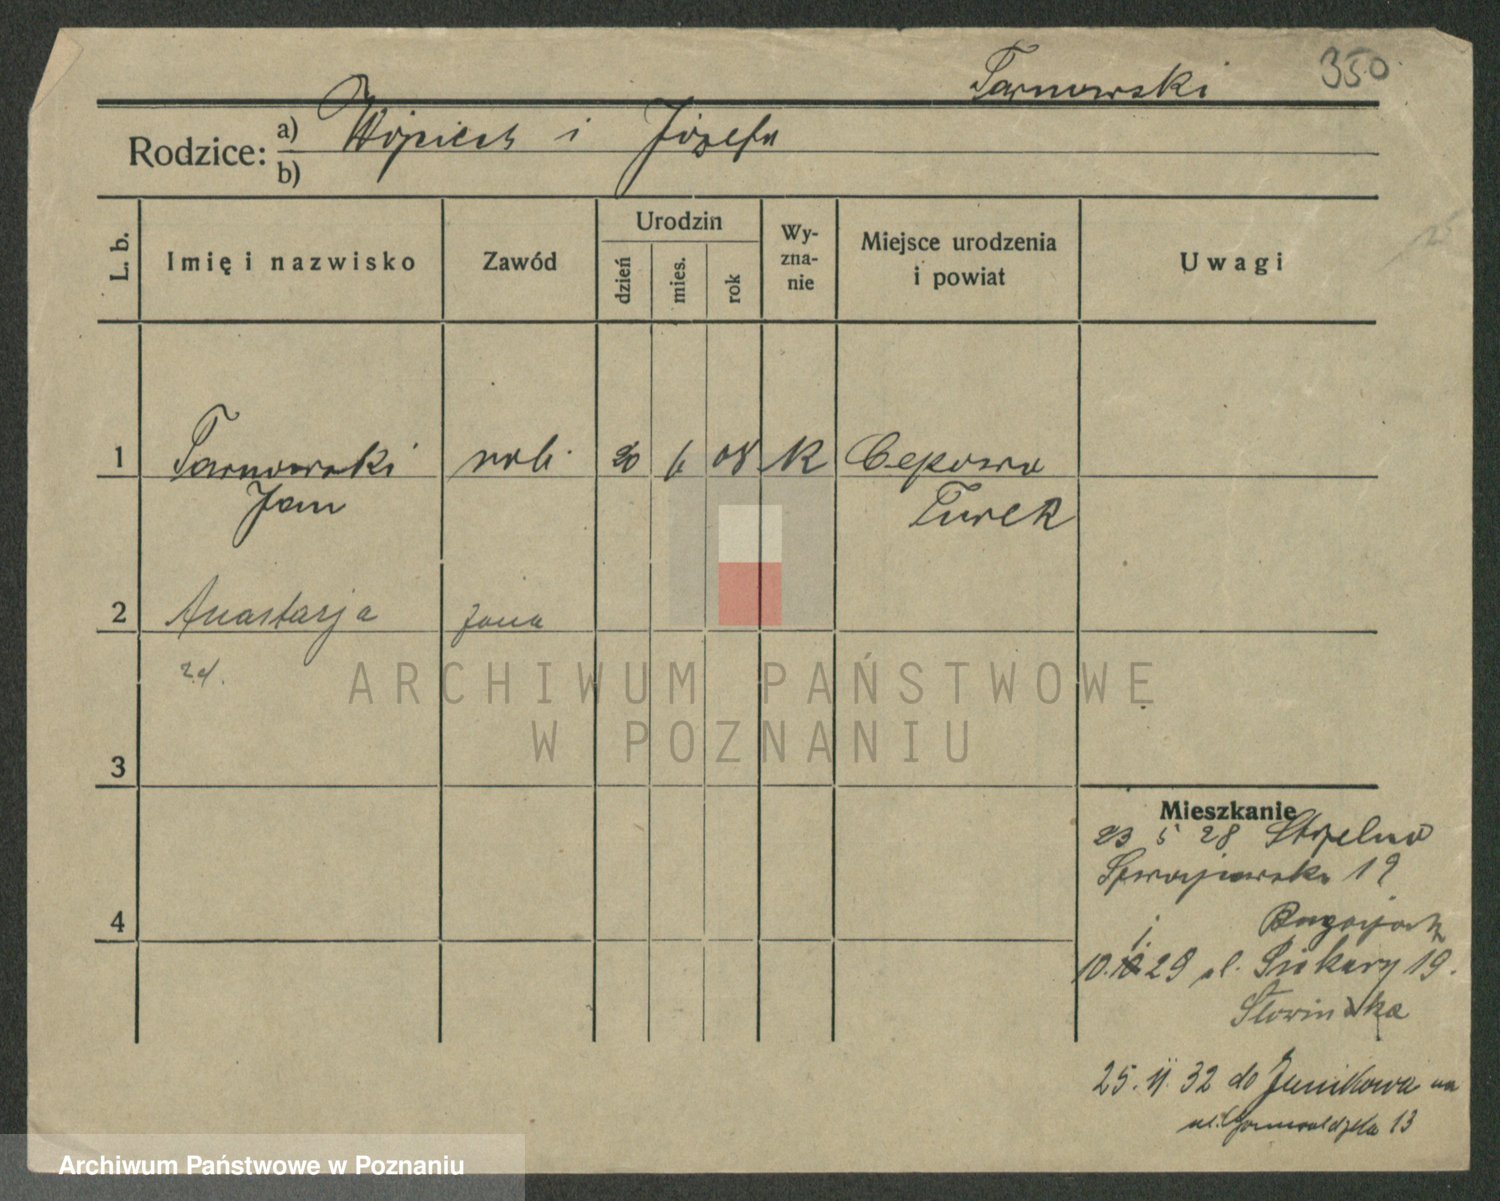 Tarnowski 350
Rodzice: a) Wojciech i Józefa
b)
L. b. Imię i nazwisko Zawód Urodzin dzień mies. rok Wy-zna-nie Miejsce urodzenia i powiat Uwagi
1 Tarnowski rob. 20 6 08 K Cekowo
Jan Turek
2 Anastazja żona
zd.
3
ARCHIWUM PAŃSTWOWE
W POZNANIU
Mieszkanie
23 5 28 Strzelno
19
4
10. 29 ul. Piekary 19.
Słowińska
25. II. 32 do Junikowa na
ul. Grunwaldzka 13
Archiwum Państwowe w Poznaniu